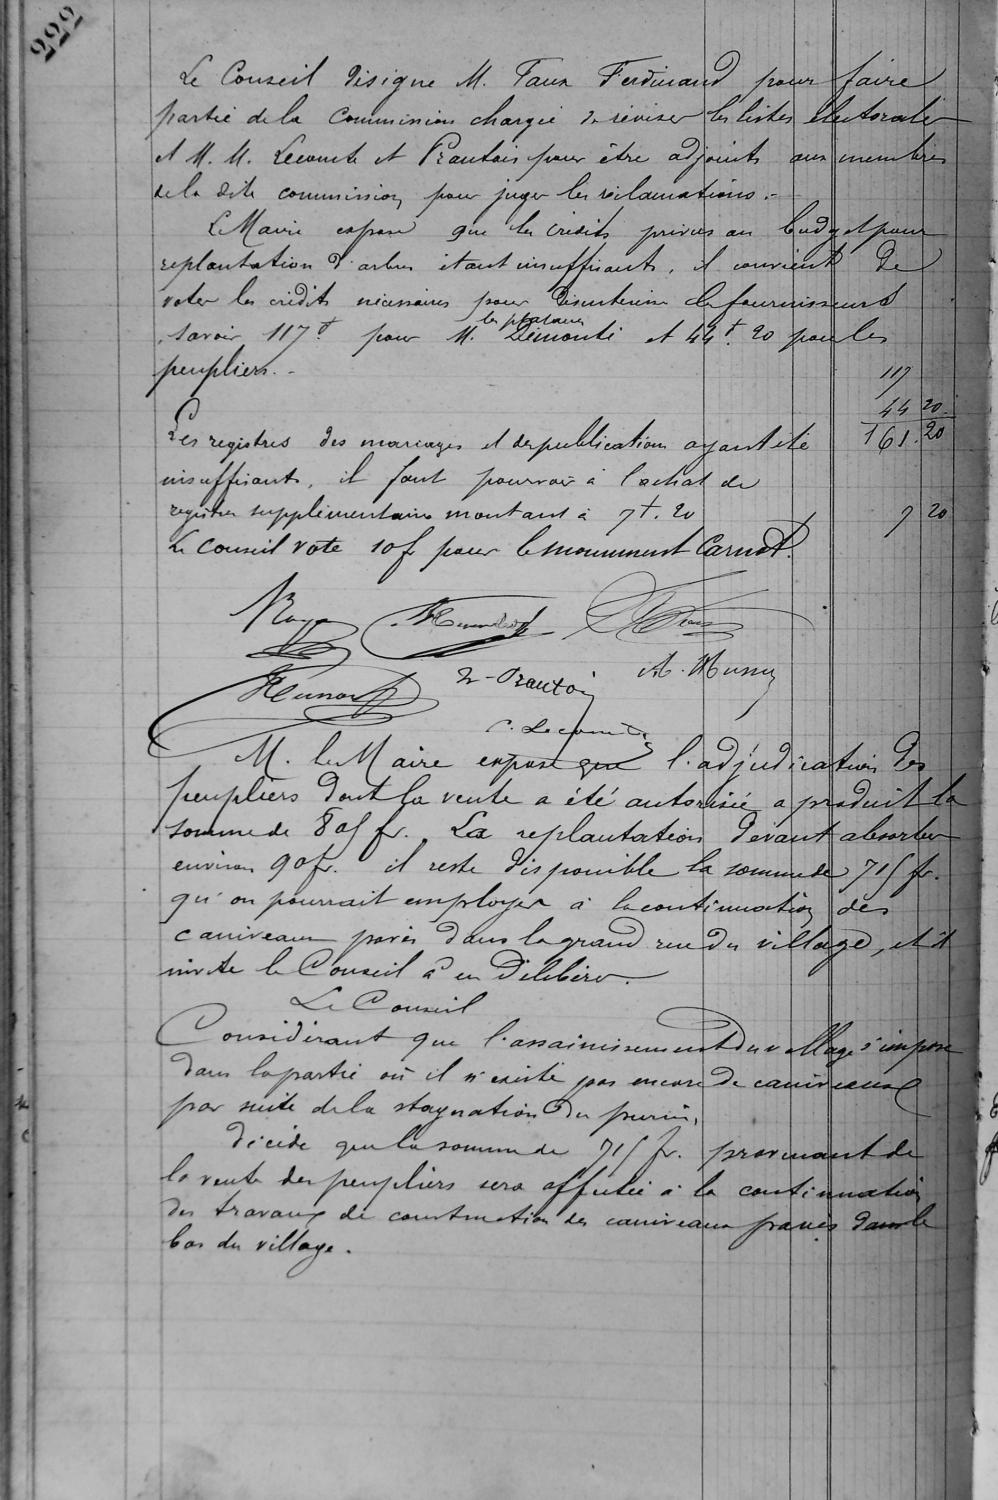 222
Le Conseil désigne M. Faux Ferdinand pour faire
partie de la Commission chargée de réviser les listes électorales
et M. M. Lecomte et Prautois pour être adjoints aux membres
de la dite commission pour juger les réclamations.-
Le Maire expose que les crédits prévus au budget pour
replantation d'arbres étant insuffisants, il convient de
voter les crédits nécessaires pour désintéresser les fournisseurs
les platanes
savoir 117f pour M. Démonté et 44f.20 pour les
peupliers.-
117
44 20
161.20
Les registres des mariages et des publications ayant été
insuffisants, il faut pourvoir à l'achat de
registres supplémentaires montant à 7f.20
7 20
Le Conseil vote 10f pour le monument Carnot.
Prautois
A. Husson
C. Lecomte
M. le Maire expose que l'adjudication des
peupliers dont la vente a été autorisée a produit la
somme de 805 fr. La replantation devant absorber
environ 90fr. il reste disponible la somme de 715 fr.
qu'on pourrait employer à la continuation des
caniveaux pavés dans la grand rue du village, et il
invite le Conseil à en délibérer.
Le Conseil
Considérant que l'assainissement du village s'impose
dans la partie où il n'existe pas encore de caniveaux
par suite de la stagnation du purin,
décide que la somme de 715 fr. provenant de
la vente des peupliers sera affectée à la continuation
des travaux de construction des caniveaux pavés dans le
bas du village.